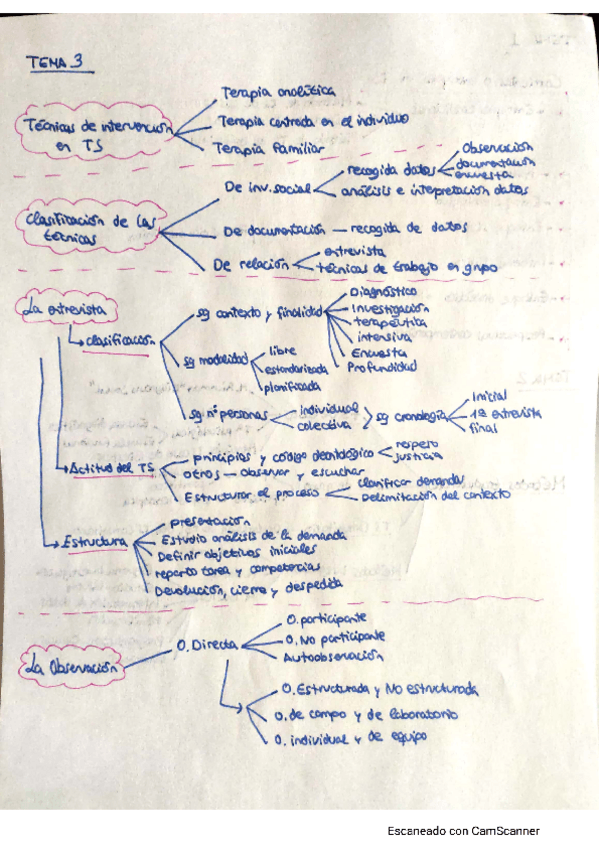 TEMA 3
Técnicas de intervención
en TS
Terapia analítica
Terapia centrada en el individuo
Terapia familiar
Clasificación de las
técnicas
De inv. social
recogida datos
Observación
documentación
encuesta
análisis e interpretación datos
De documentación — recogida de datos
De relación
entrevista
técnicas de trabajo en grupo
La entrevista
clasificación
sg contexto y finalidad
Diagnóstico
Investigación
terapéutica
intensiva
Encuesta
Profundidad
sg modalidad
libre
estandarizada
planificada
sg nº personas
individual
colectiva
sg cronología
Inicial
1ª entrevista
final
Actitud del TS
principios y código deontológico
respeto
justicia
otros — observar y escuchar
Estructurar el proceso
clarificar demandas
Delimitación del contexto
Estructura
presentación
Estudio análisis de la demanda
Definir objetivos iniciales
reparto tarea y competencias
Devolución, cierre y despedida
La Observación
O. Directa
O. participante
O. No participante
Autoobservación
O. Estructurada y No estructurada
O. de campo y de laboratorio
O. individual y de equipo
Escaneado con CamScanner